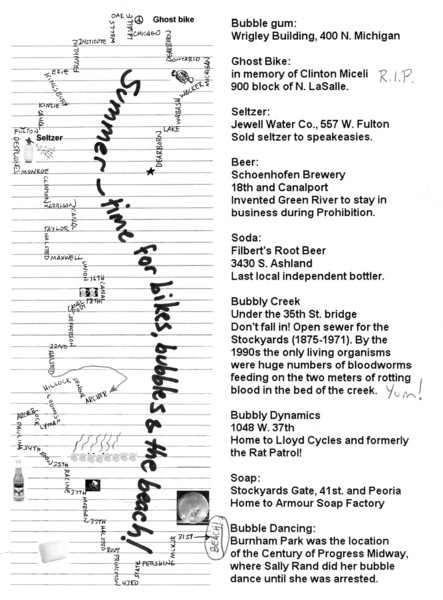 OAK
Ghost bike
LASALLE
CHICAGO
INSTITUTE
FRANKLIN
DEARBORN
ONTARIO
MICHIGAN
ERIE
KINGSBURY
WACKER
WABASH
KINZIE
LAKE
FULTON
Seltzer
DESPLAINES
DEARBORN
MONROE
CLINTON
HARRISON
CANAL
TAYLOR
HALSTED
MAXWELL
UNION
16TH
CANAL
18TH
CANALPORT
JEFFERSON
22ND
HALSTED
HILLOCK
SENOUR
ARCHER
LOOMIS
ARCHER
LYMAN
PAULINA
34TH
35TH
RACINE
37TH
MORGAN
HALSTED
ROOT
PRINCETON
43RD
STATE
PERSHING
MLK JR
31ST
BEACH!
Summer—time for bikes, bubbles & the beach!
Bubble gum:
Wrigley Building, 400 N. Michigan
Ghost Bike:
in memory of Clinton Miceli R.I.P.
900 block of N. LaSalle.
Seltzer:
Jewell Water Co., 557 W. Fulton
Sold seltzer to speakeasies.
Beer:
Schoenhofen Brewery
18th and Canalport
Invented Green River to stay in
business during Prohibition.
Soda:
Filbert's Root Beer
3430 S. Ashland
Last local independent bottler.
Bubbly Creek
Under the 35th St. bridge
Don't fall in! Open sewer for the
Stockyards (1875-1971). By the
1990s the only living organisms
were huge numbers of bloodworms
feeding on the two meters of rotting
blood in the bed of the creek. Yum!
Bubbly Dynamics
1048 W. 37th
Home to Lloyd Cycles and formerly
the Rat Patrol!
Soap:
Stockyards Gate, 41st. and Peoria
Home to Armour Soap Factory
Bubble Dancing:
Burnham Park was the location
of the Century of Progress Midway,
where Sally Rand did her bubble
dance until she was arrested.